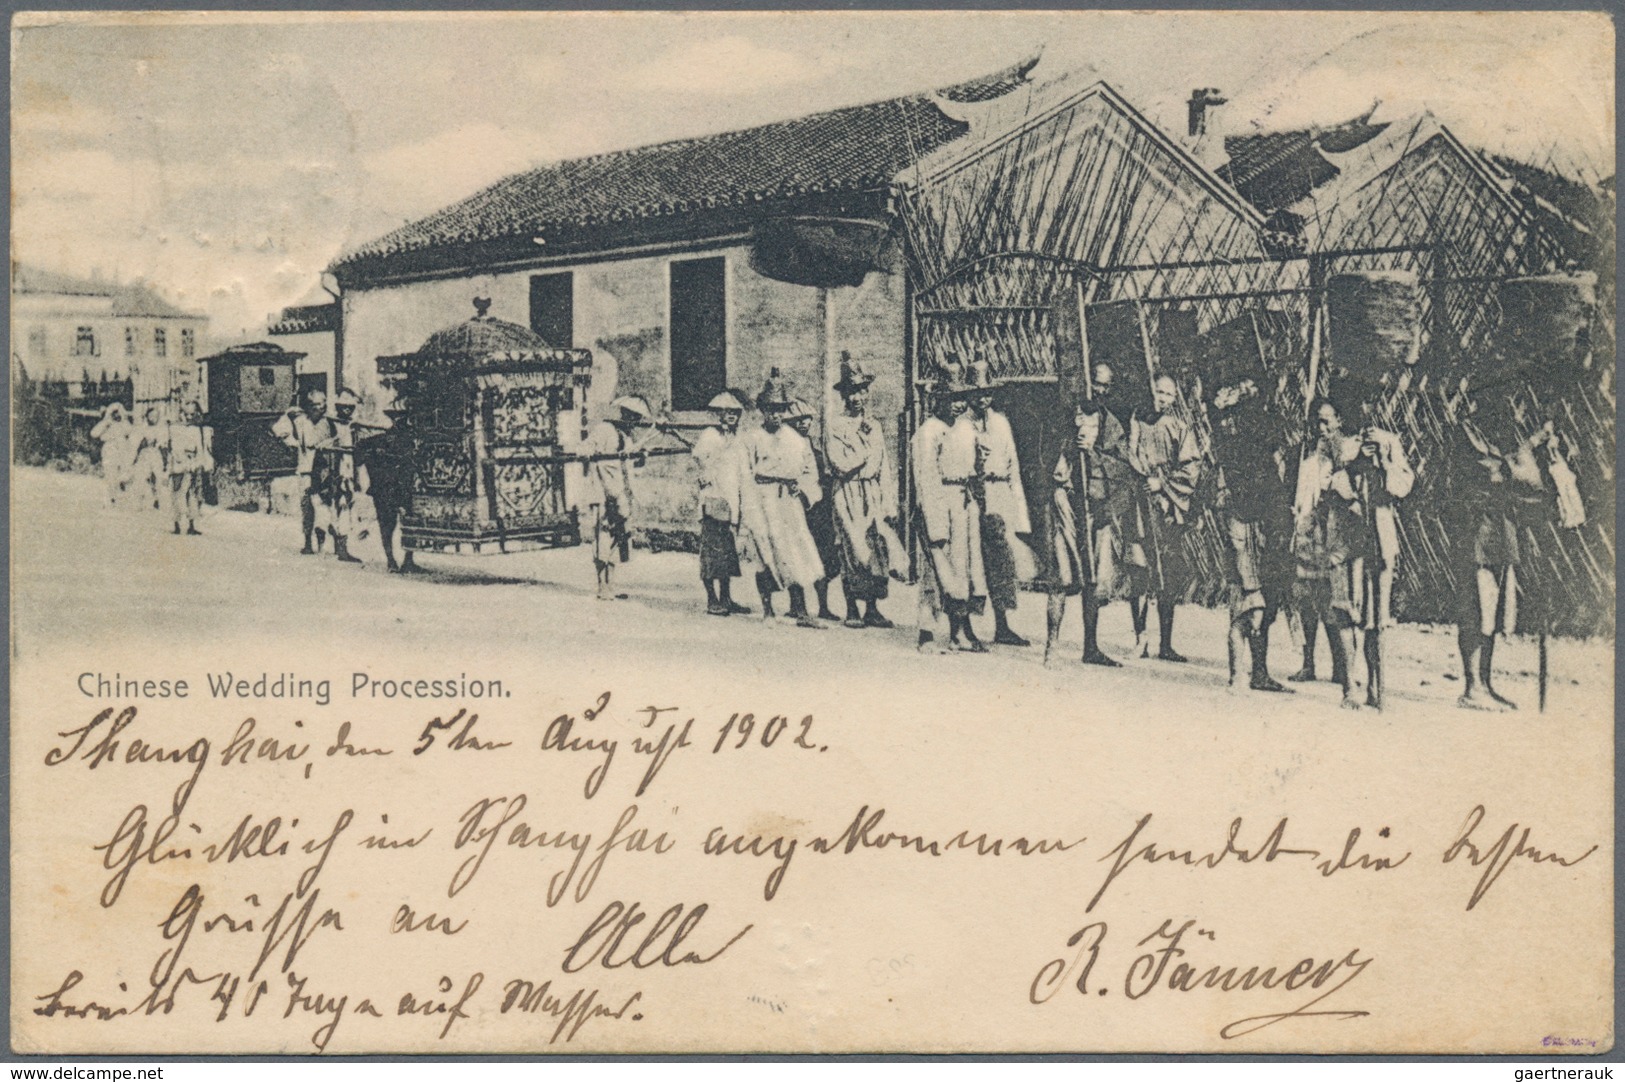 Chinese Wedding Procession.
Shanghai, den 5ten August 1902.
Glücklich in Schanghai angekommen sendet die besten
Grüsse an Alle R. Jänner
bereits 45 Tage auf Wasser.
www.delcampe.net
gaertnerauk